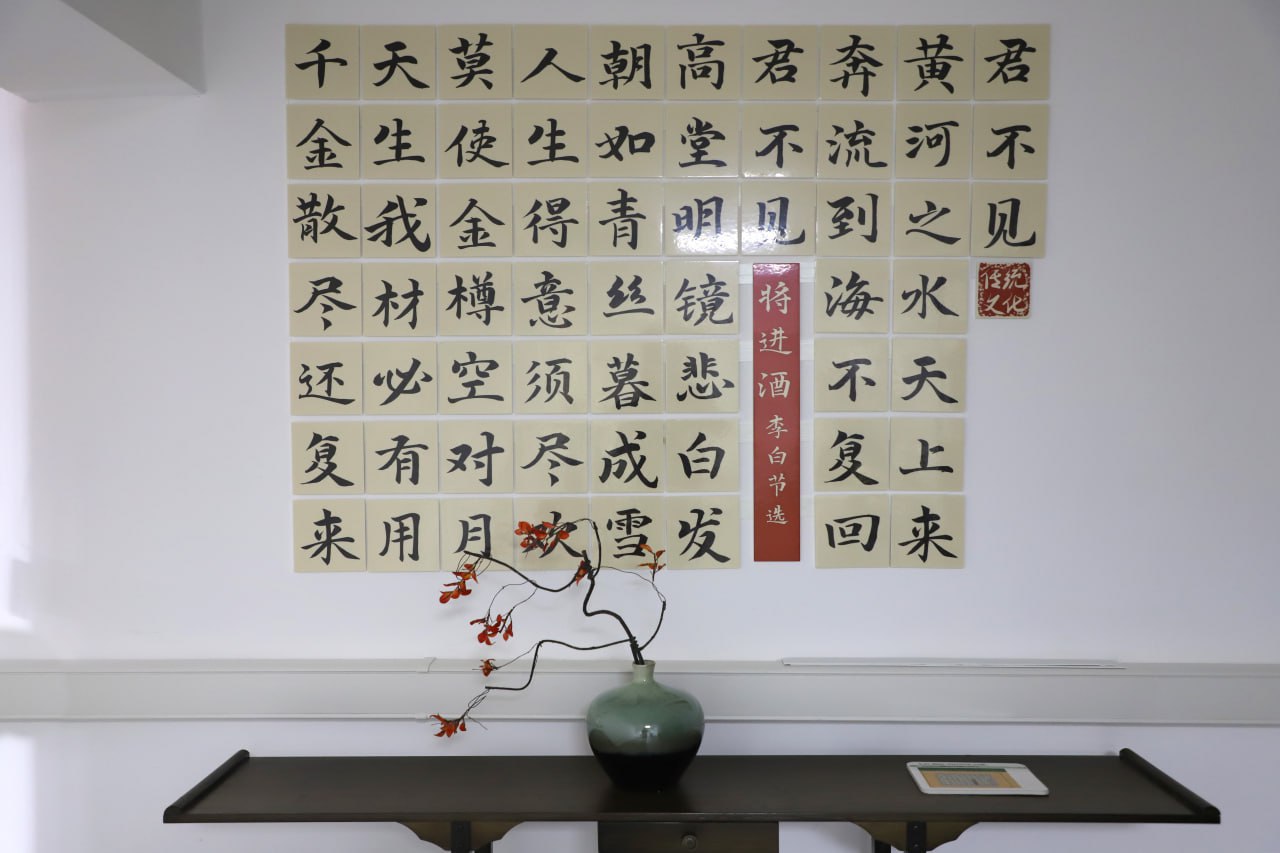 君不见
传统文化
黄河之水天上来
奔流到海不复回
君不见
将进酒 李白节选
高堂明镜悲白发
朝如青丝暮成雪
人生得意须尽欢
莫使金樽空对月
天生我材必有用
千金散尽还复来